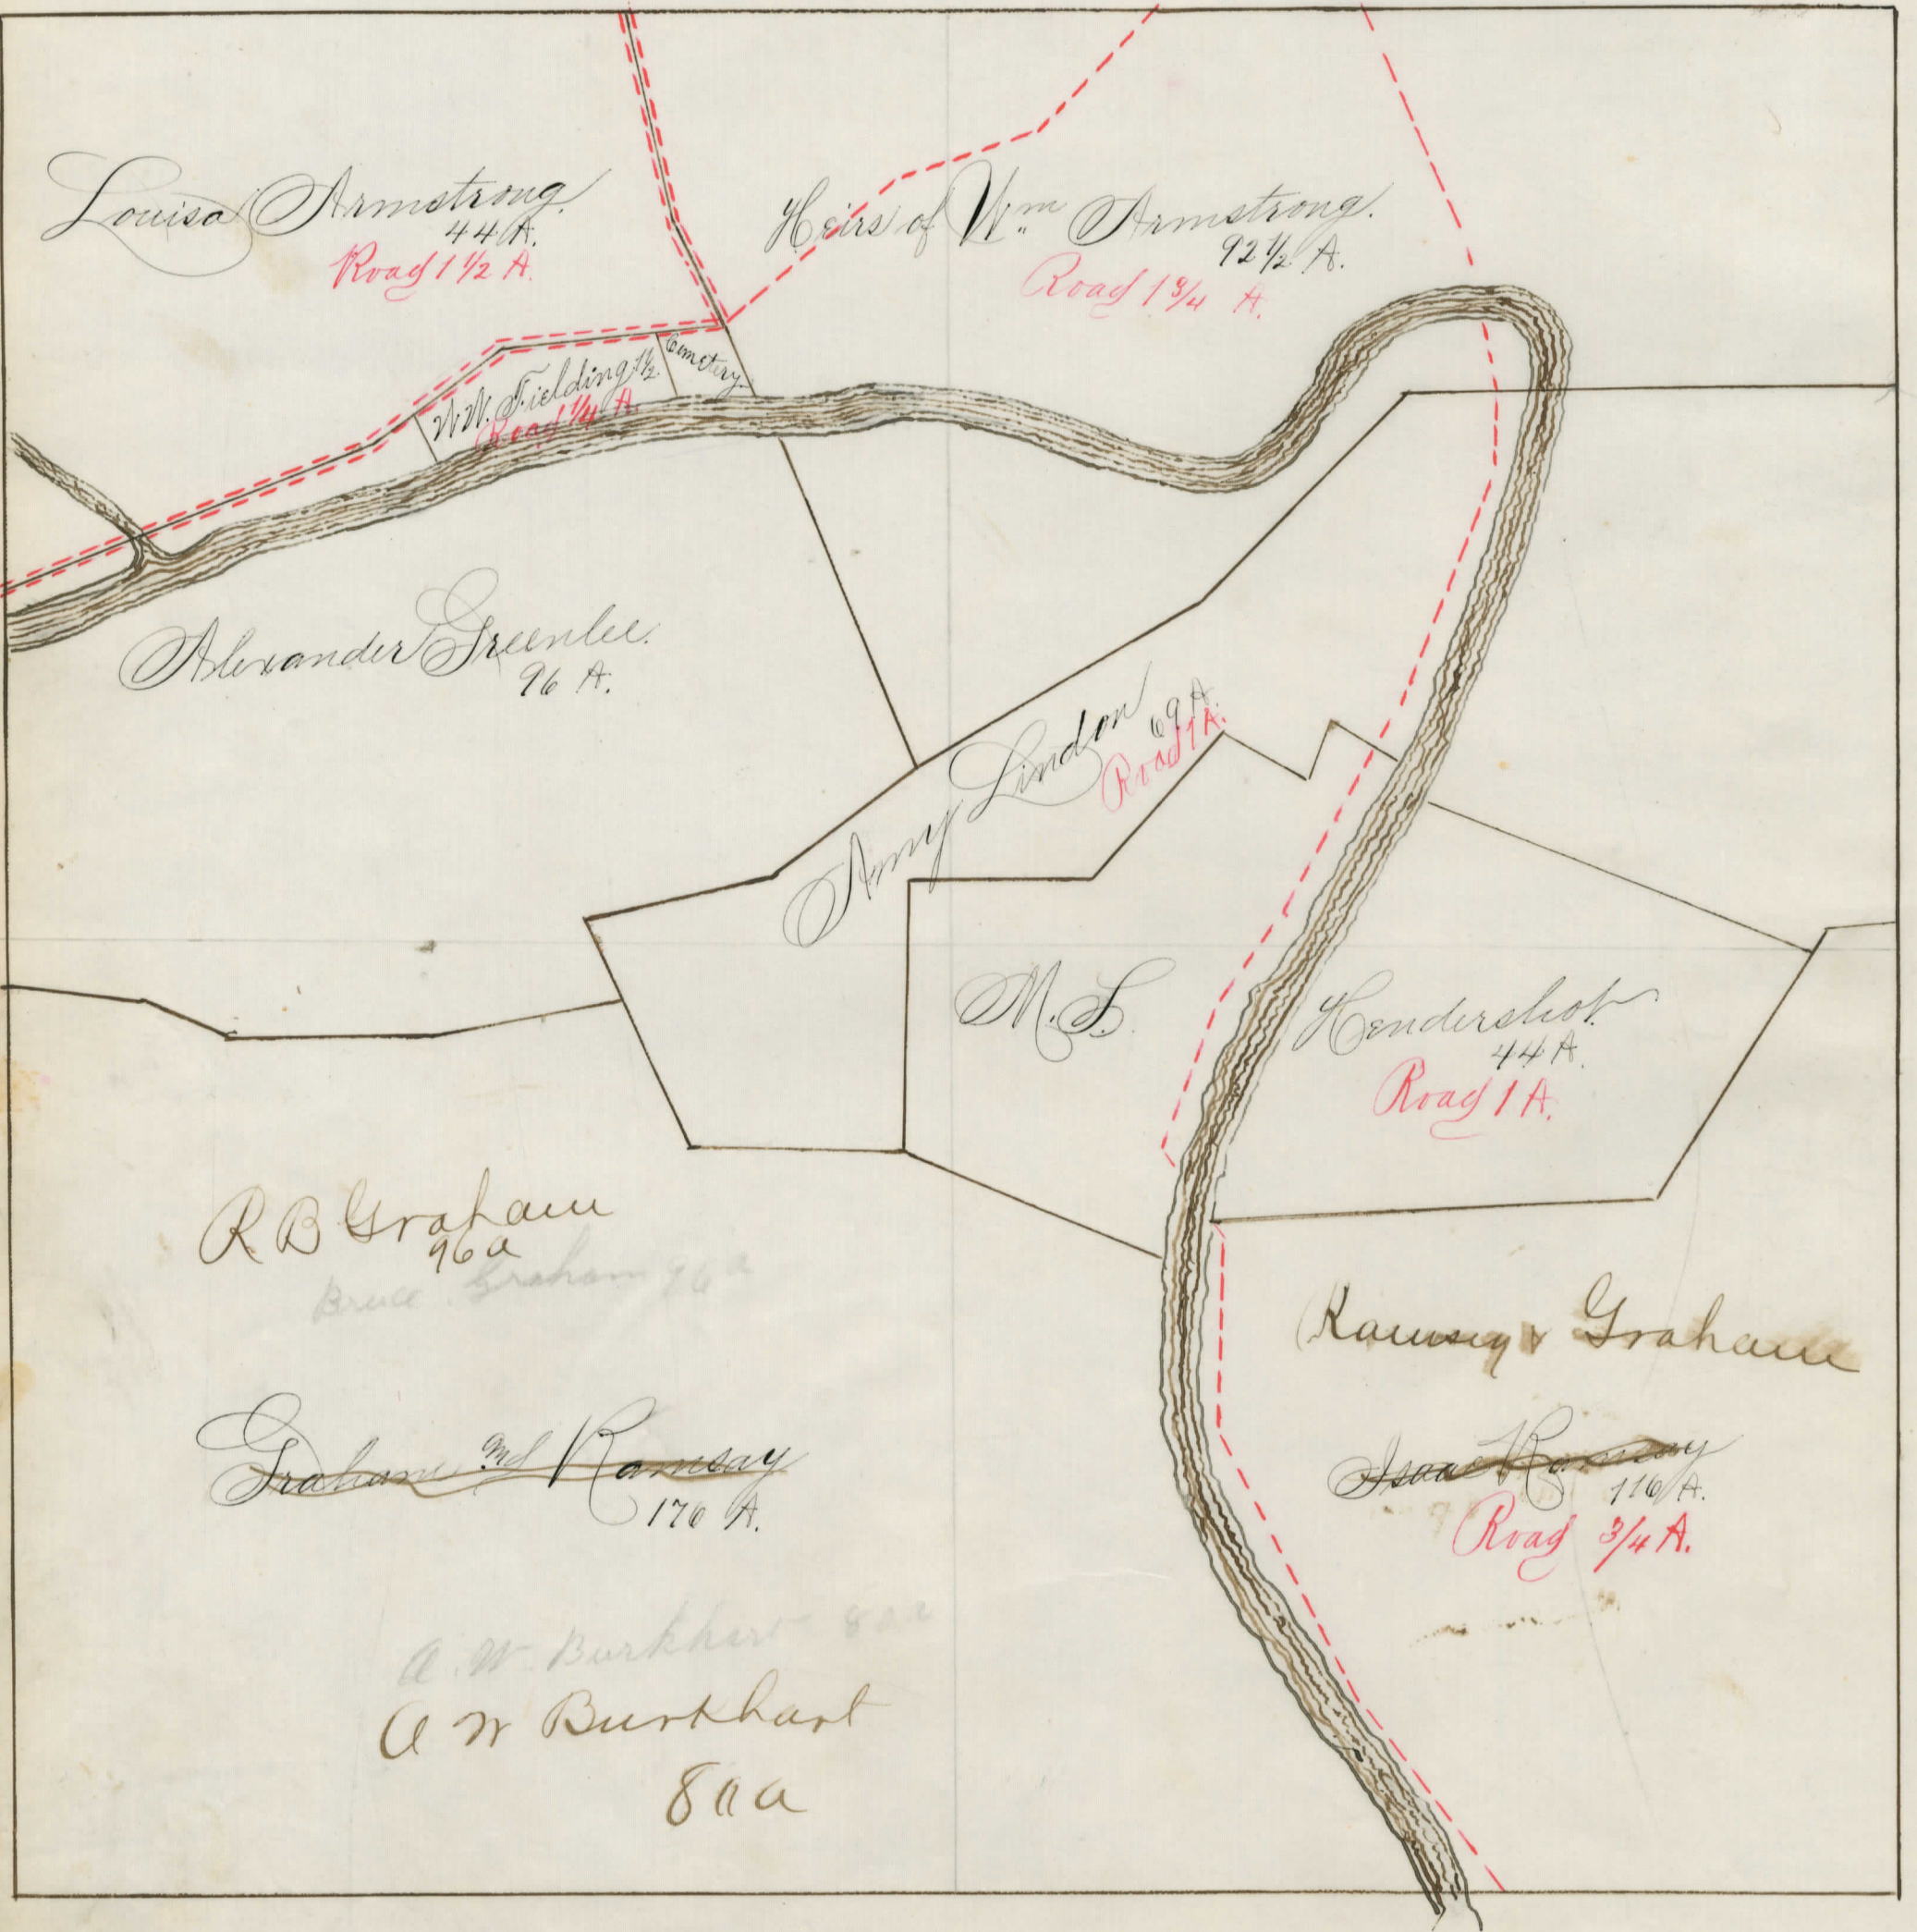 Louisa Armstrong.
44 A.
Road 1 1/2 A.
Heirs of Wm Armstrong.
92 1/2 A.
Road 1 3/4 A.
W.W. Fielding 1 1/2
Road 1/4 A.
Cemetery.
Alexander Greenlee.
96 A.
Amy Lindon
69 A.
Road 1 A.
M. S. Hendershot.
44 A.
Road 1 A.
R B Graham
96 a
Bruce Graham 96 a
Ramsey & Graham
Graham and Ramsay
176 A.
Isaac Ramsay
116 A.
Road 3/4 A.
A. W. Burkhart 80 a
A W Burkhart
80 a